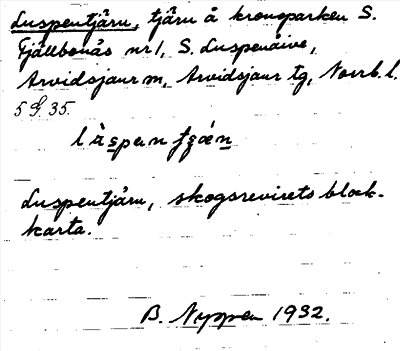 Luspentjärn, tjärn å kronoparken S.
Fjällbonäs nr 1, S. Luspenåive,
Arvidsjaur m, Arvidsjaur tg, Norrb. l.
5 G. 35.
Luspentjärn, skogsrevirets block-
karta.
B. Nyppen 1932.